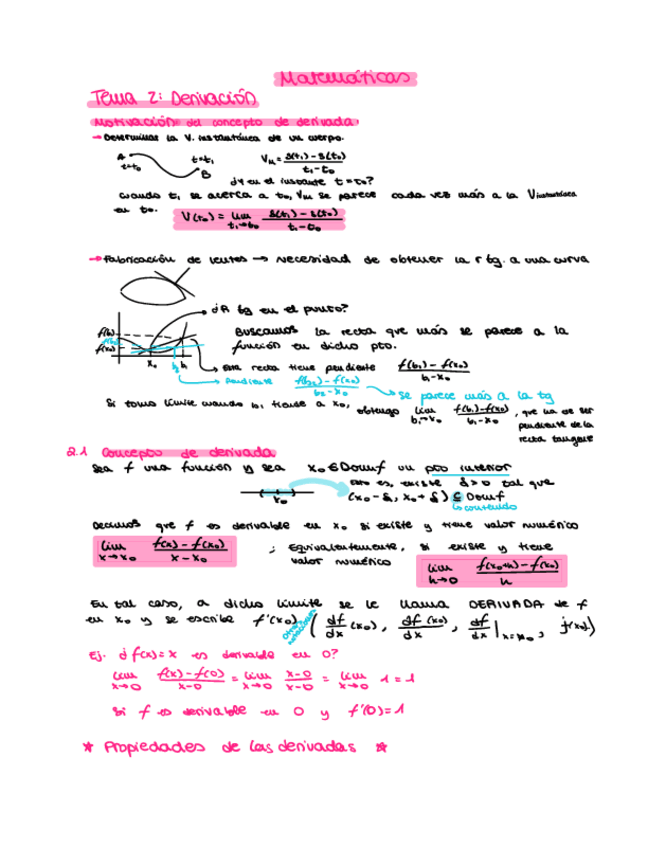 Matemáticas
Tema 2: Derivación
Motivación del concepto de derivada:
→ Determinar la V. instantánea de un cuerpo.
A t=t₀ t=t₁ B Vₘ = (s(t₁) - s(t₀))/(t₁ - t₀)
¿Y en el instante t=t₀?
cuando t₁ se acerca a t₀, Vₘ se parece cada vez más a la V instantánea
en t₀. V(t₀) = lim t₁→t₀ (s(t₁) - s(t₀))/(t₁ - t₀)
→ Fabricación de lentes → necesidad de obtener la r tg. a una curva
¿R tg en el punto?
Buscamos la recta que más se parece a la
función en dicho pto.
f(b₁)
f(b₂)
f(x₀)
x₀ b₂ b₁
Esta recta tiene pendiente (f(b₁) - f(x₀))/(b₁ - x₀)
Pendiente (f(b₂) - f(x₀))/(b₂ - x₀) → se parece más a la tg
Si tomo límite cuando b₁ tiende a x₀, obtengo lim b₁→x₀ (f(b₁) - f(x₀))/(b₁ - x₀), que ha de ser
pendiente de la
recta tangente
2.1 Concepto de derivada
Sea f una función y sea x₀ ∈ Domf un pto interior
esto es, existe δ>0 tal que
x₀ (x₀ - δ, x₀ + δ) ⊆ Domf
contenido
Decimos que f es derivable en x₀ si existe y tiene valor numérico
lim x→x₀ (f(x) - f(x₀))/(x - x₀) ; Equivalentemente, si existe y tiene
valor numérico lim h→0 (f(x₀+h) - f(x₀))/h
En tal caso, a dicho límite se le llama DERIVADA de f
en x₀ y se escribe f'(x₀) (df/dx (x₀), df(x₀)/dx, df/dx |x=x₀, ḟ(x₀))
otras notaciones
Ej. ¿f(x)=x es derivable en 0?
lim x→0 (f(x) - f(0))/(x-0) = lim x→0 (x-0)/(x-0) = lim x→0 1 = 1
Si f es derivable en 0 y f'(0)=1
* Propiedades de las derivadas *